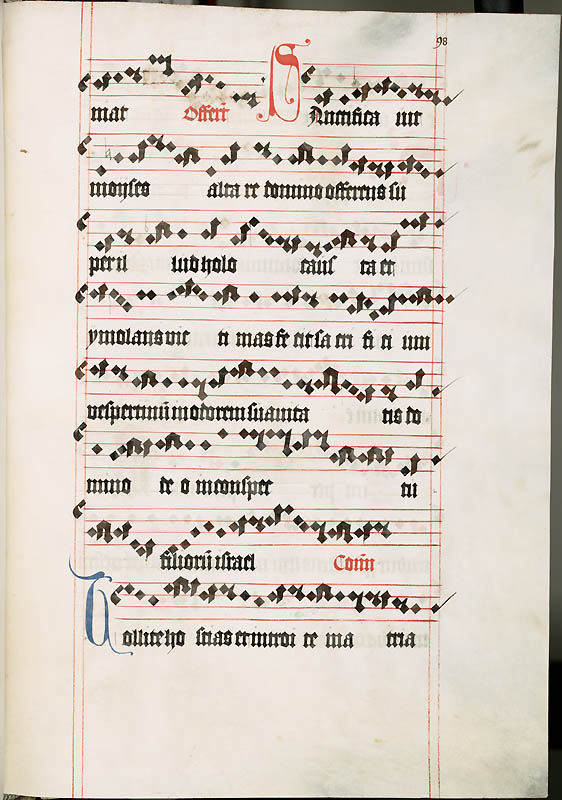 98
mat Offert Sanctifica uit
moyses alta re domino offerens su
per il lud holo caus ta et
ymolans vic ti mas fe cit sa cri fi ci um
vespertinū in odorem suavita tis do
mino de o in conspec tu
filiorū israel Com̄
Tollite ho stias et introi te in a tria